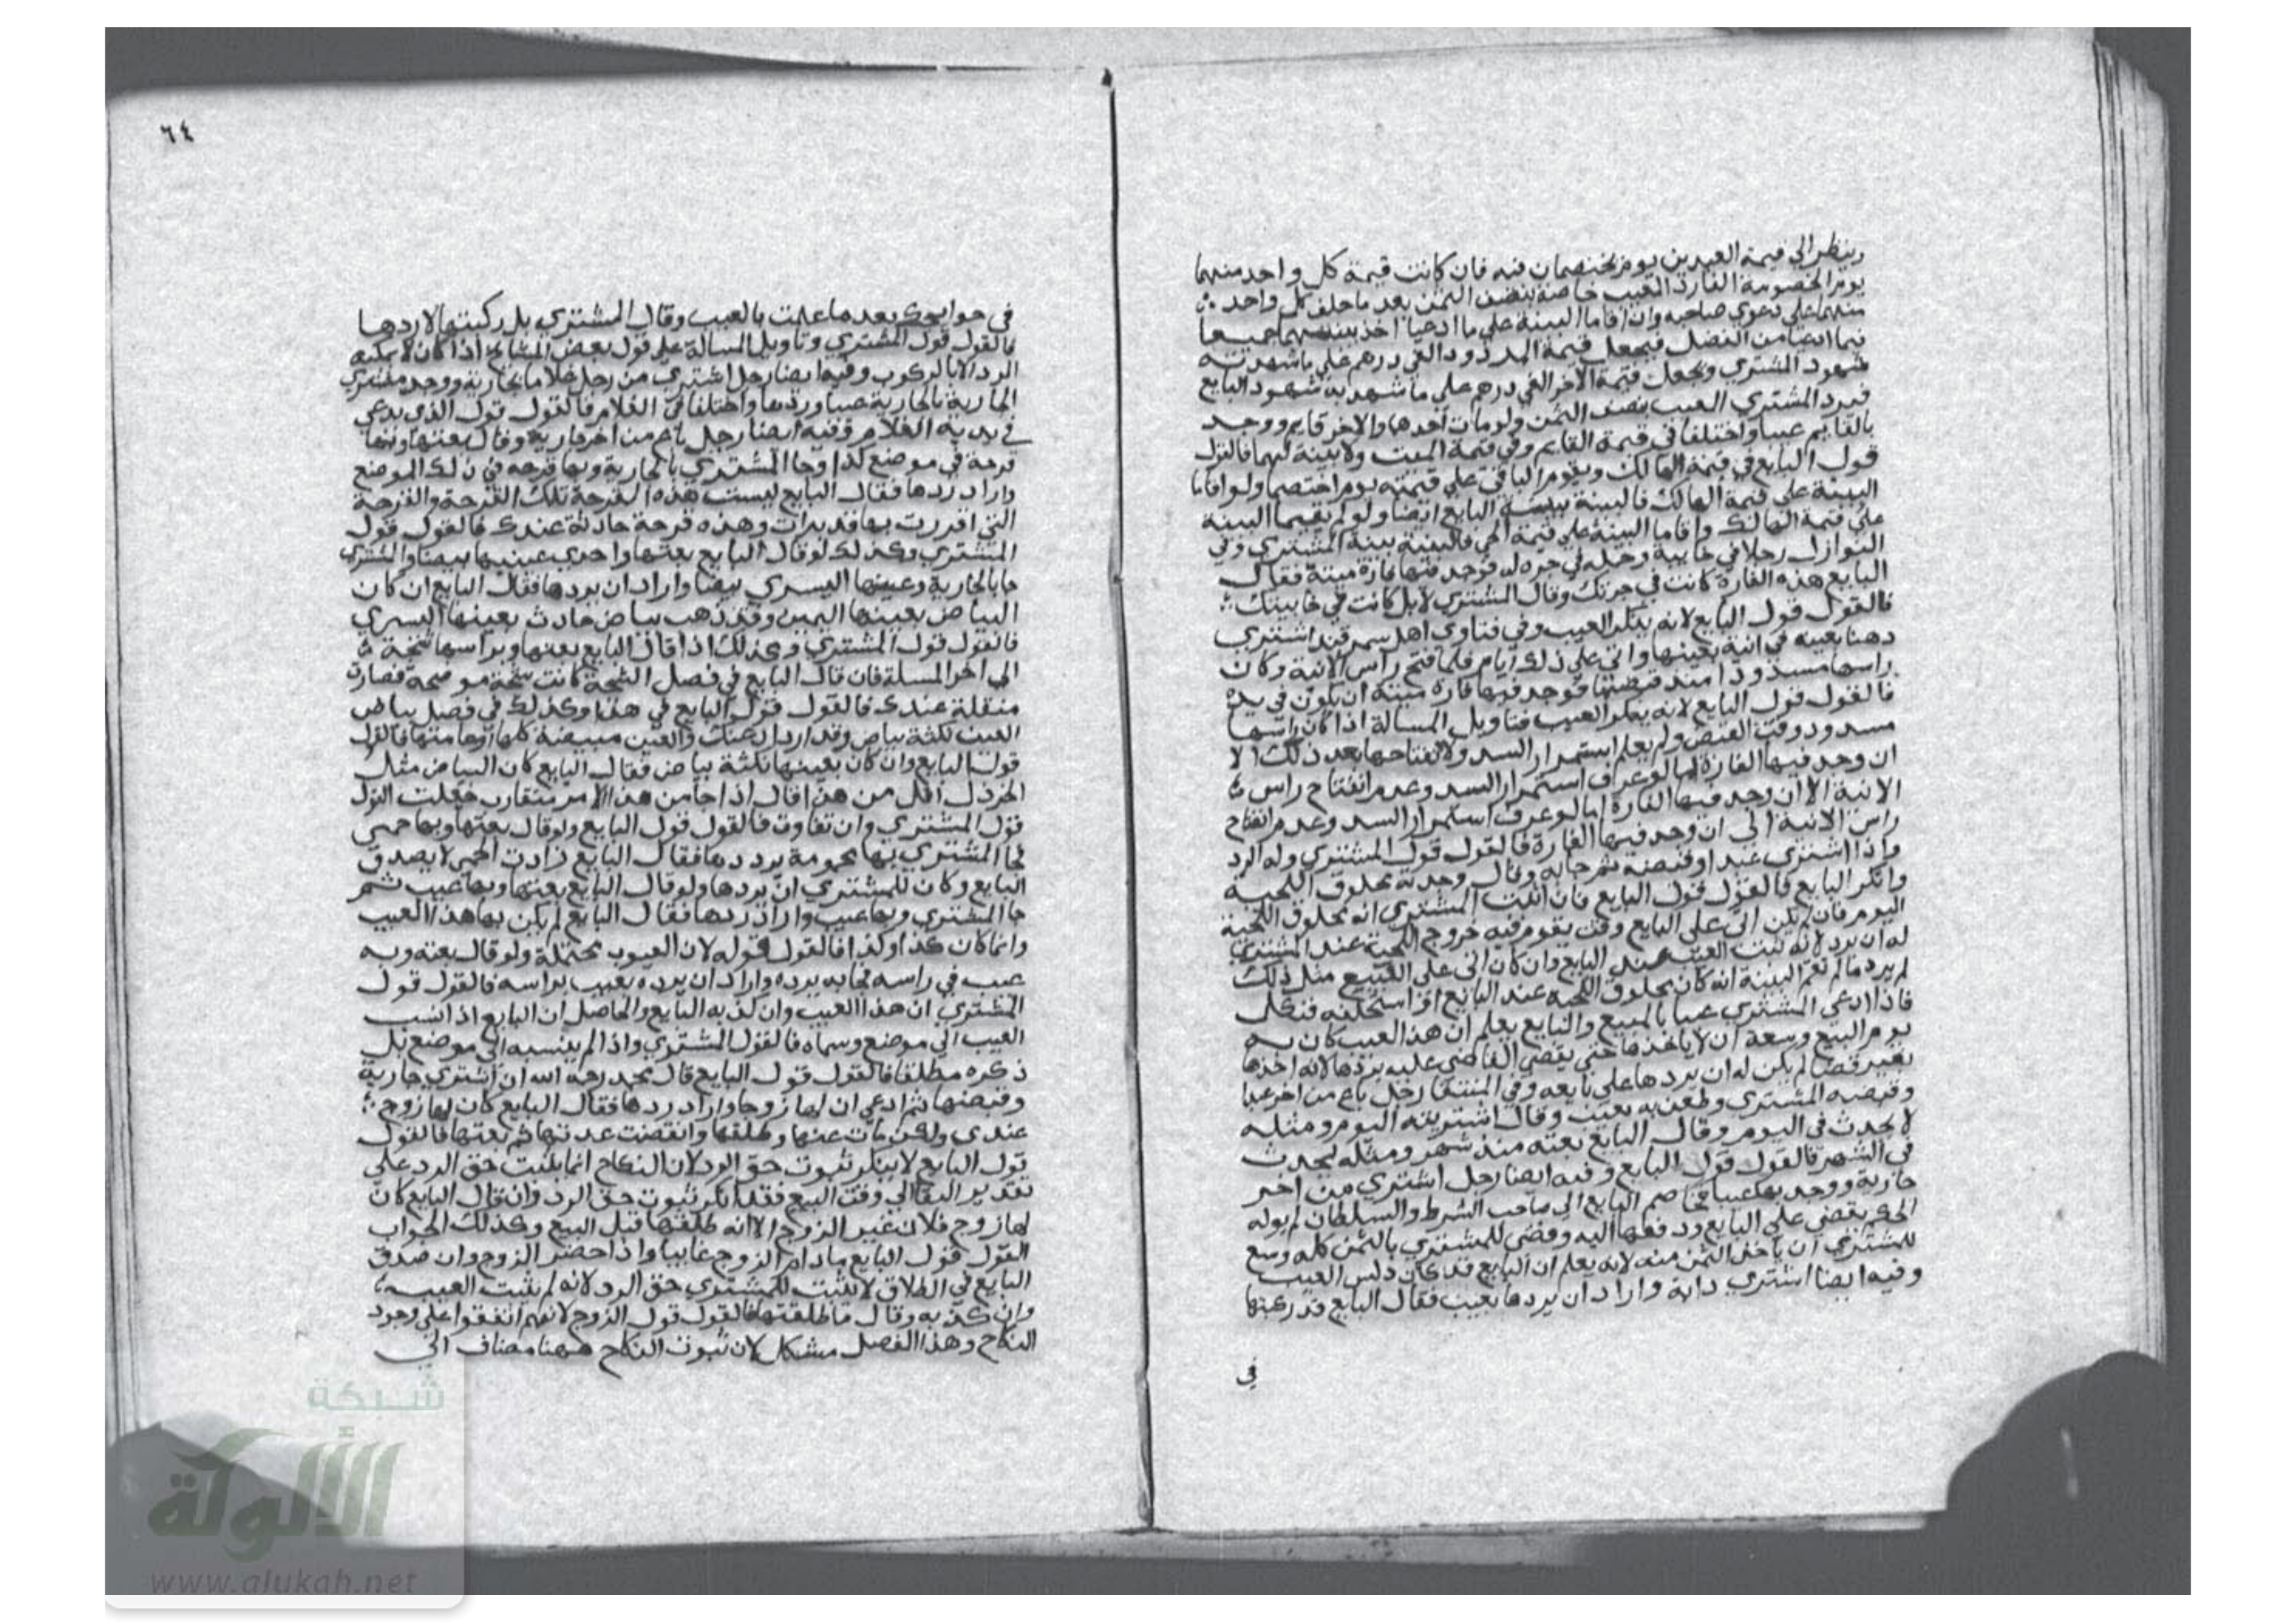 وينظر الي قيمة العبدين يوم يختصمان فيه فان كانت قيمة كل واحد منهما
يوم الخصومة الفا رد المعيب خاصة بنصف الثمن بعد ما حلف كل واحد
منهما على دعوي صاحبه وان اقاما البينة علي ما ادعيا اخذ ببينتهما جميعا
فيما ادعيا من الفضل فيجعل قيمة المردود الفي درهم علي ما شهدت به
شهود المشتري ويجعل قيمة الاخر الفي درهم علي ما شهد به شهود البايع
فيرد المشتري العيب بنصف الثمن ولو مات احدهما والاخر قايم ووجد
بالقايم عيبا واختلفا في قيمة القايم وفي قيمة الميت ولا بينة لهما فالقول
قول البايع في قيمة الهالك ويقوم الباقي علي قيمته يوم اختصما ولو اقاما
البينة على قيمة الهالك فالبينة بينة البايع ايضا ولو لم يقيما البينة
علي قيمة الهالك واقاما البينة علي قيمة الحي فالبينة بينة المشتري وفي
النوازل رجلا في خابية وحمله في جره له فوجد فيها فارة ميتة فقال
البايع هذه الفارة كانت في جرتك وقال المشتري لا بل كانت في خابيتك
فالقول قول البايع لانه ينكر العيب وفي فتاوي اهل سمرقند اشتري
دهنا بعينه في انية بعينها واتي علي ذلك ايام فلما فتح راس الانية وكان
راسها مسدودا منذ قبضها فوجد فيها فارة ميتة ان يكون في يده
فالقول قول البايع لانه ينكر العيب فتاويل المسالة اذا كان راسها
مسدود وقت القبض ولم يعلم استمرار السد ولا انفتاحها بعد ذلك الا
ان وجد فيها الفارة اما لو عرف استمرار السد وعدم انفتاح راس
الانية الا ان وجد فيها الفارة اما لو عرف استمرار السد وعدم انفتاح
راس الانية الي ان وجد فيها الفارة فالقول قول المشتري وله الرد
واذا اشتري عبدا وقبضه ثم جا به وقال وجدته محلوق اللحية
وانكر البايع فالقول قول البايع فان اثبت المشتري انه محلوق اللحية
اليوم فان لم يكن اتي على البايع وقت يتوهم فيه خروج اللحية عند المشتري
له ان يرد لانه ثبت العيب عند البايع وان كان اتي علي البيع مثل ذلك
لم يرد مالم تقم البينة انه كان محلوق اللحية عند البايع او استحلفه فنكل
فاذا ادعي المشتري عيبا بالمبيع والبايع يعلم ان هذا العيب كان به
يوم البيع وسعه ان لا ياخذها حتي يقضي القاضي عليه بردها لانه اخذها
بغير قضا لم يكن له ان يردها علي بايعه وفي المنتقا رجل باع من اخر عبدا
وقبضه المشتري وطعن به بعيب وقال اشتريته اليوم ومثله
لا يحدث في اليوم وقال البايع بعته منذ شهر ومثله يحدث
في الشهر فالقول قول البايع وفيه ايضا رجل اشتري من اخر
جارية ووجد بها عيبا فخاصم البايع الي صاحب الشرط والسلطان لم يوله
الحكم بقضي علي البايع ودفعها اليه وقضي للمشتري بالثمن كله وسع
للمشتري ان ياخذ الثمن منه لانه يعلم ان البايع قد كان دلس العيب
وفيه ايضا اشتري دابة واراد ان يردها بعيب فقال البايع قد ركبتها
في
٦٤
في حوايجك بعد ما علمت بالعيب وقال المشتري بل ركبتها لاردها
فالقول قول المشتري وتاويل المسالة علي قول بعض المشايخ اذا كان لا يمكنه
الرد الا بالركوب وفيه ايضا رجل اشتري من رجل غلاما بجارية ووجد مشتري
الجارية بالجارية عيبا وردها واختلفا في الغلام فالقول قول الذي يدعي
في يديه الغلام وفيه ايضا رجل باع من اخر جارية وقال بعتها وبها
قرحة في موضع كذا وجا المشتري بالجارية وبها قرحه في ذلك الموضع
واراد ردها فقال البايع ليست هذه القرحة تلك القرحة والقرحة
التي اقررت بها قد برات وهذه قرحة حادثة عندك فالقول قول
المشتري وكذلك لو قال البايع بعتها واحدي عينيها بيضا والمشتري
جا بالجارية وعينها اليسري بيضا واراد ان يردها فقال البايع ان كان
البياض بعينها اليمين وقد ذهب بياض حادث بعينها اليسري
فالقول قول المشتري وكذلك اذا قال البايع بعتها وبراسها شجة
الي اخر المسلة فان قال البايع في فصل الشجة كانت شجة موضحة فصارت
منقلة عندك فالقول قول البايع في هذا وكذلك في فصل بياض
العين نكتة بياض وقد ازداد عندك والعين مبيضة كلها او عامتها فالقول
قول البايع وان كان بعينها نكتة بياض فقال البايع كان البياض مثل
الخردل اقل من هذا قال اذا جا من هذا امر متقارب جعلت القول
قول المشتري وان تفاوت فالقول قول البايع ولو قال بعتها وبها حمي
فجا المشتري بها محمومة يردها فقال البايع زادت الحمي لا يصدق
البايع وكان للمشتري ان يردها ولو قال البايع بعتها وبها عيب ثم
جا المشتري وبها عيب واراد ردها فقال البايع لم يكن بها هذا العيب
وانما كان كذا وكذا فالقول قوله لان العيوب محتملة ولو قال بعته وبه
عيب في راسه فجا به يرده واراد ان يرده بعيب براسه فالقول قول
المشتري ان هذا العيب وان كذبه البايع والحاصل ان البايع اذا نسب
العيب الي موضع وسماه فالقول للمشتري واذا لم ينسبه الي موضع بل
ذكره مطلقا فالقول قول البايع قال محمد رحمه الله ان اشتري جارية
وقبضها ثم ادعي ان لها زوجا واراد ردها فقال البايع كان لها زوج
عندي ولكن مات عنها او طلقها وانقضت عدتها ثم بعتها فالقول
قول البايع لا ينكر ثبوت حق الرد لان النكاح انما يثبت حق الرد علي
تقدير البقا الي وقت البيع فقد انكر ثبوت حق الرد وان قال البايع كان
لها زوج فلان غير الزوج الا انه طلقها قبل البيع وكذلك الجواب
القول قول البايع مادام الزوج غايبا واذا حضر الزوج وان صدق
البايع في الطلاق لا يثبت للمشتري حق الرد لانه لم يثبت العيب
وان كذبه وقال ما طلقتها فالقول قول الزوج لانهم اتفقوا علي وجود
النكاح وهذا الفصل مشكل لان ثبوت النكاح ههنا مضاف الي
شبكة
الألوكة
www.alukah.net